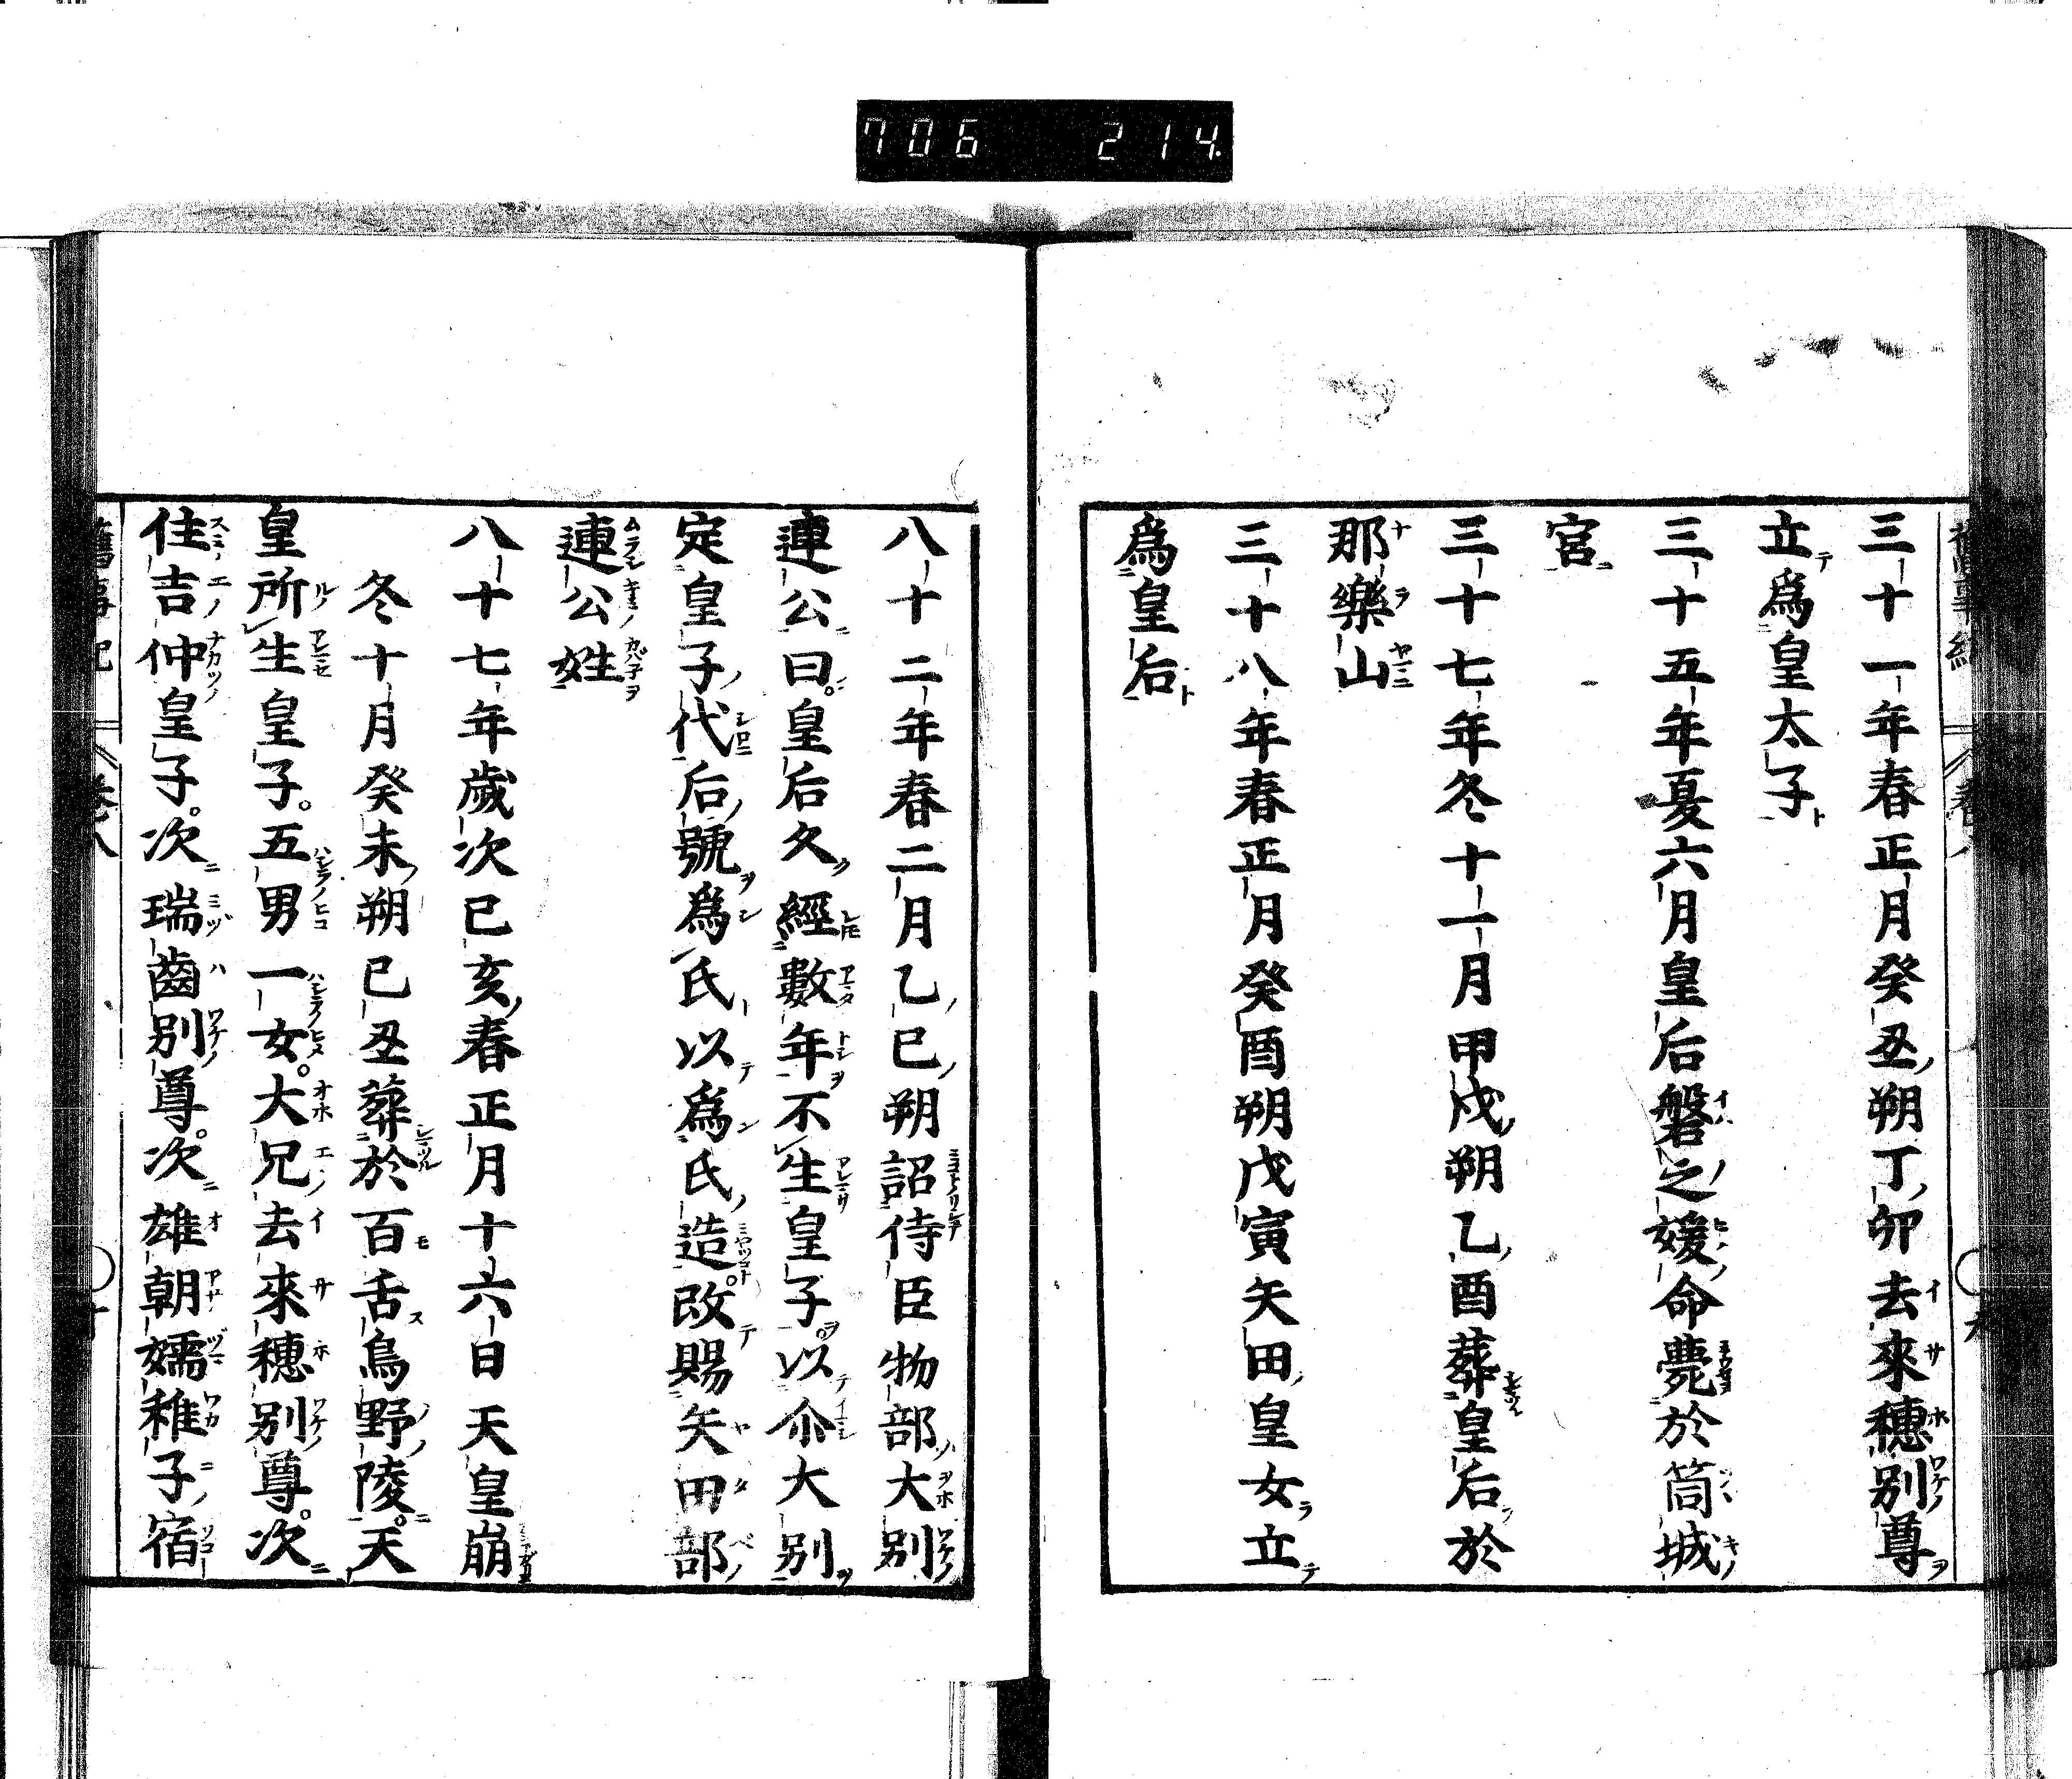 706 214
三十一年春正月癸丑朔丁卯去來穗別尊
立爲皇太子
三十五年夏六月皇后磐之媛命薨於筒城
宮
三十七年冬十一月甲戌朔乙酉葬皇后於
那樂山
三十八年春正月癸酉朔戊寅矢田皇女立
爲皇后
八十二年春二月乙巳朔詔侍臣物部大別
連公曰皇后久經數年不生皇子以尒大別
定皇子代后號爲氏以爲氏造改賜矢田部
連公姓
八十七年歲次己亥春正月十六日天皇崩
冬十月癸未朔己丑葬於百舌鳥野陵天
皇所生皇子五男一女大兄去來穗別尊次
住吉仲皇子次瑞齒別尊次雄朝嬬稚子宿
舊事紀 卷八